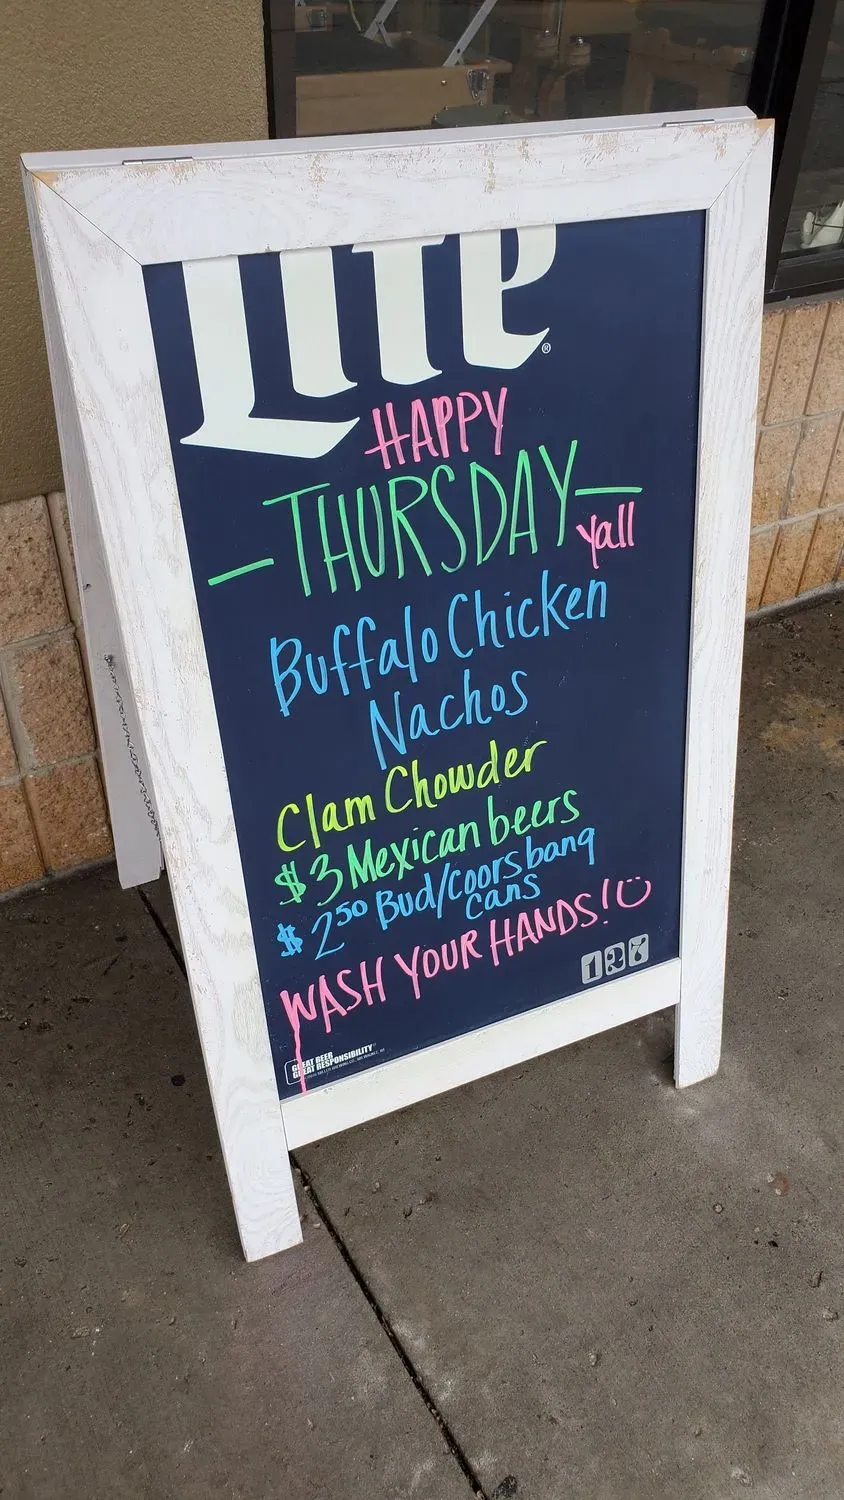 Lite®
HAPPY
-THURSDAY-
Yall
Buffalo Chicken
Nachos
Clam Chowder
$3 Mexican beers
$2.50 Bud/Coors banq
cans
WASH YOUR HANDS!
GREAT BEER
GREAT RESPONSIBILITY
127